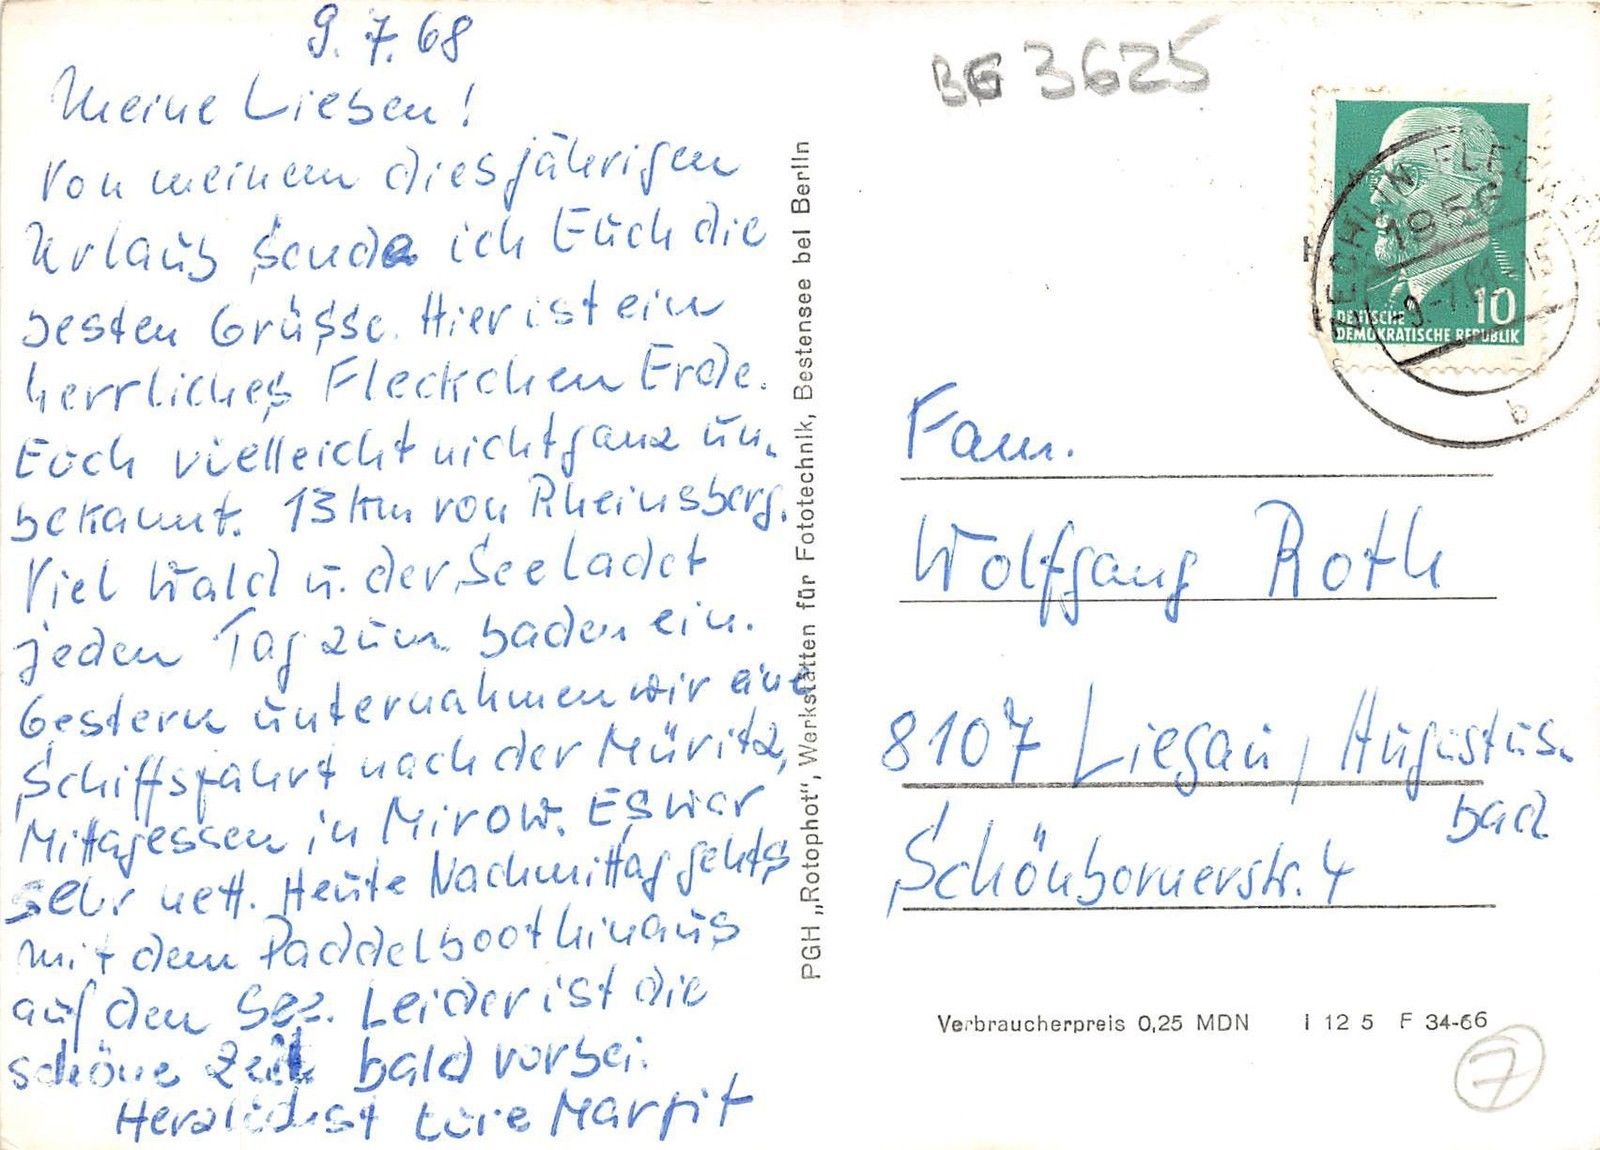 9.7.68
Meine Lieben!
Von meinem diesjährigen
Urlaub sende ich Euch die
besten Grüsse. Hier ist ein
herrliches Fleckchen Erde.
Euch vielleicht nicht ganz un-
bekannt. 13 km von Rheinsberg.
Viel Wald u. der See ladet
jeden Tag zum baden ein.
Gestern unternahmen wir eine
Schiffsfahrt nach der Müritz,
Mittagessen in Mirow. Es war
sehr nett. Heute Nachmittag gehts
mit dem Paddelboot hinaus
auf den See. Leider ist die
schöne Zeit bald vorbei.
Herzlichst Eure Margit
PGH „Rotophot“, Werkstätten für Fototechnik, Bestensee bei Berlin
BG 3625
DEUTSCHE
DEMOKRATISCHE REPUBLIK
10
ZECHLIN FLECKEN
b
Fam.
Wolfgang Roth
8107 Liegau, Augustus-
bad
Schönbornerstr. 4
Verbraucherpreis 0,25 MDN I 12 5 F 34-66
7